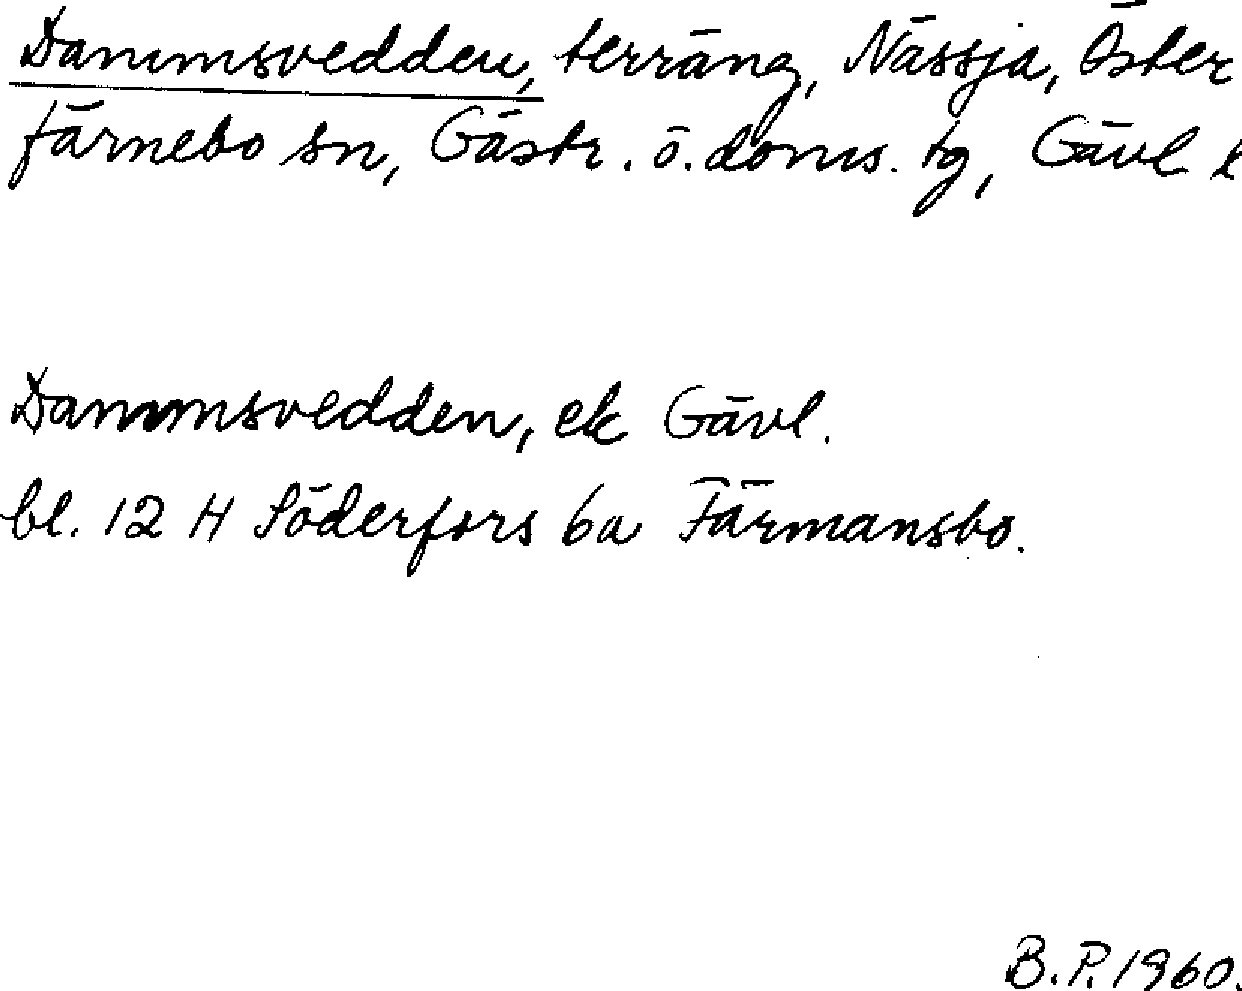 Dammsvedden, terräng, Nässja, Öster
färnebo sn, Gästr. ö. doms. tg, Gävl l
Dammsvedden, ek Gävl.
bl. 12 H Söderfors 6a Färmansbo.
B.P. 1960.